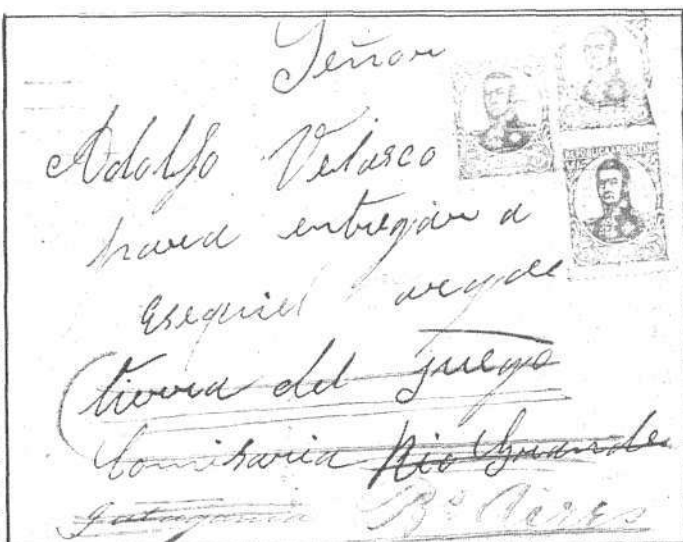 Señor
Adolfo Velasco
para entregar a
Esequiel
tierra del fuego
Comisaria Rio Grande
Patagonia Bs Aires